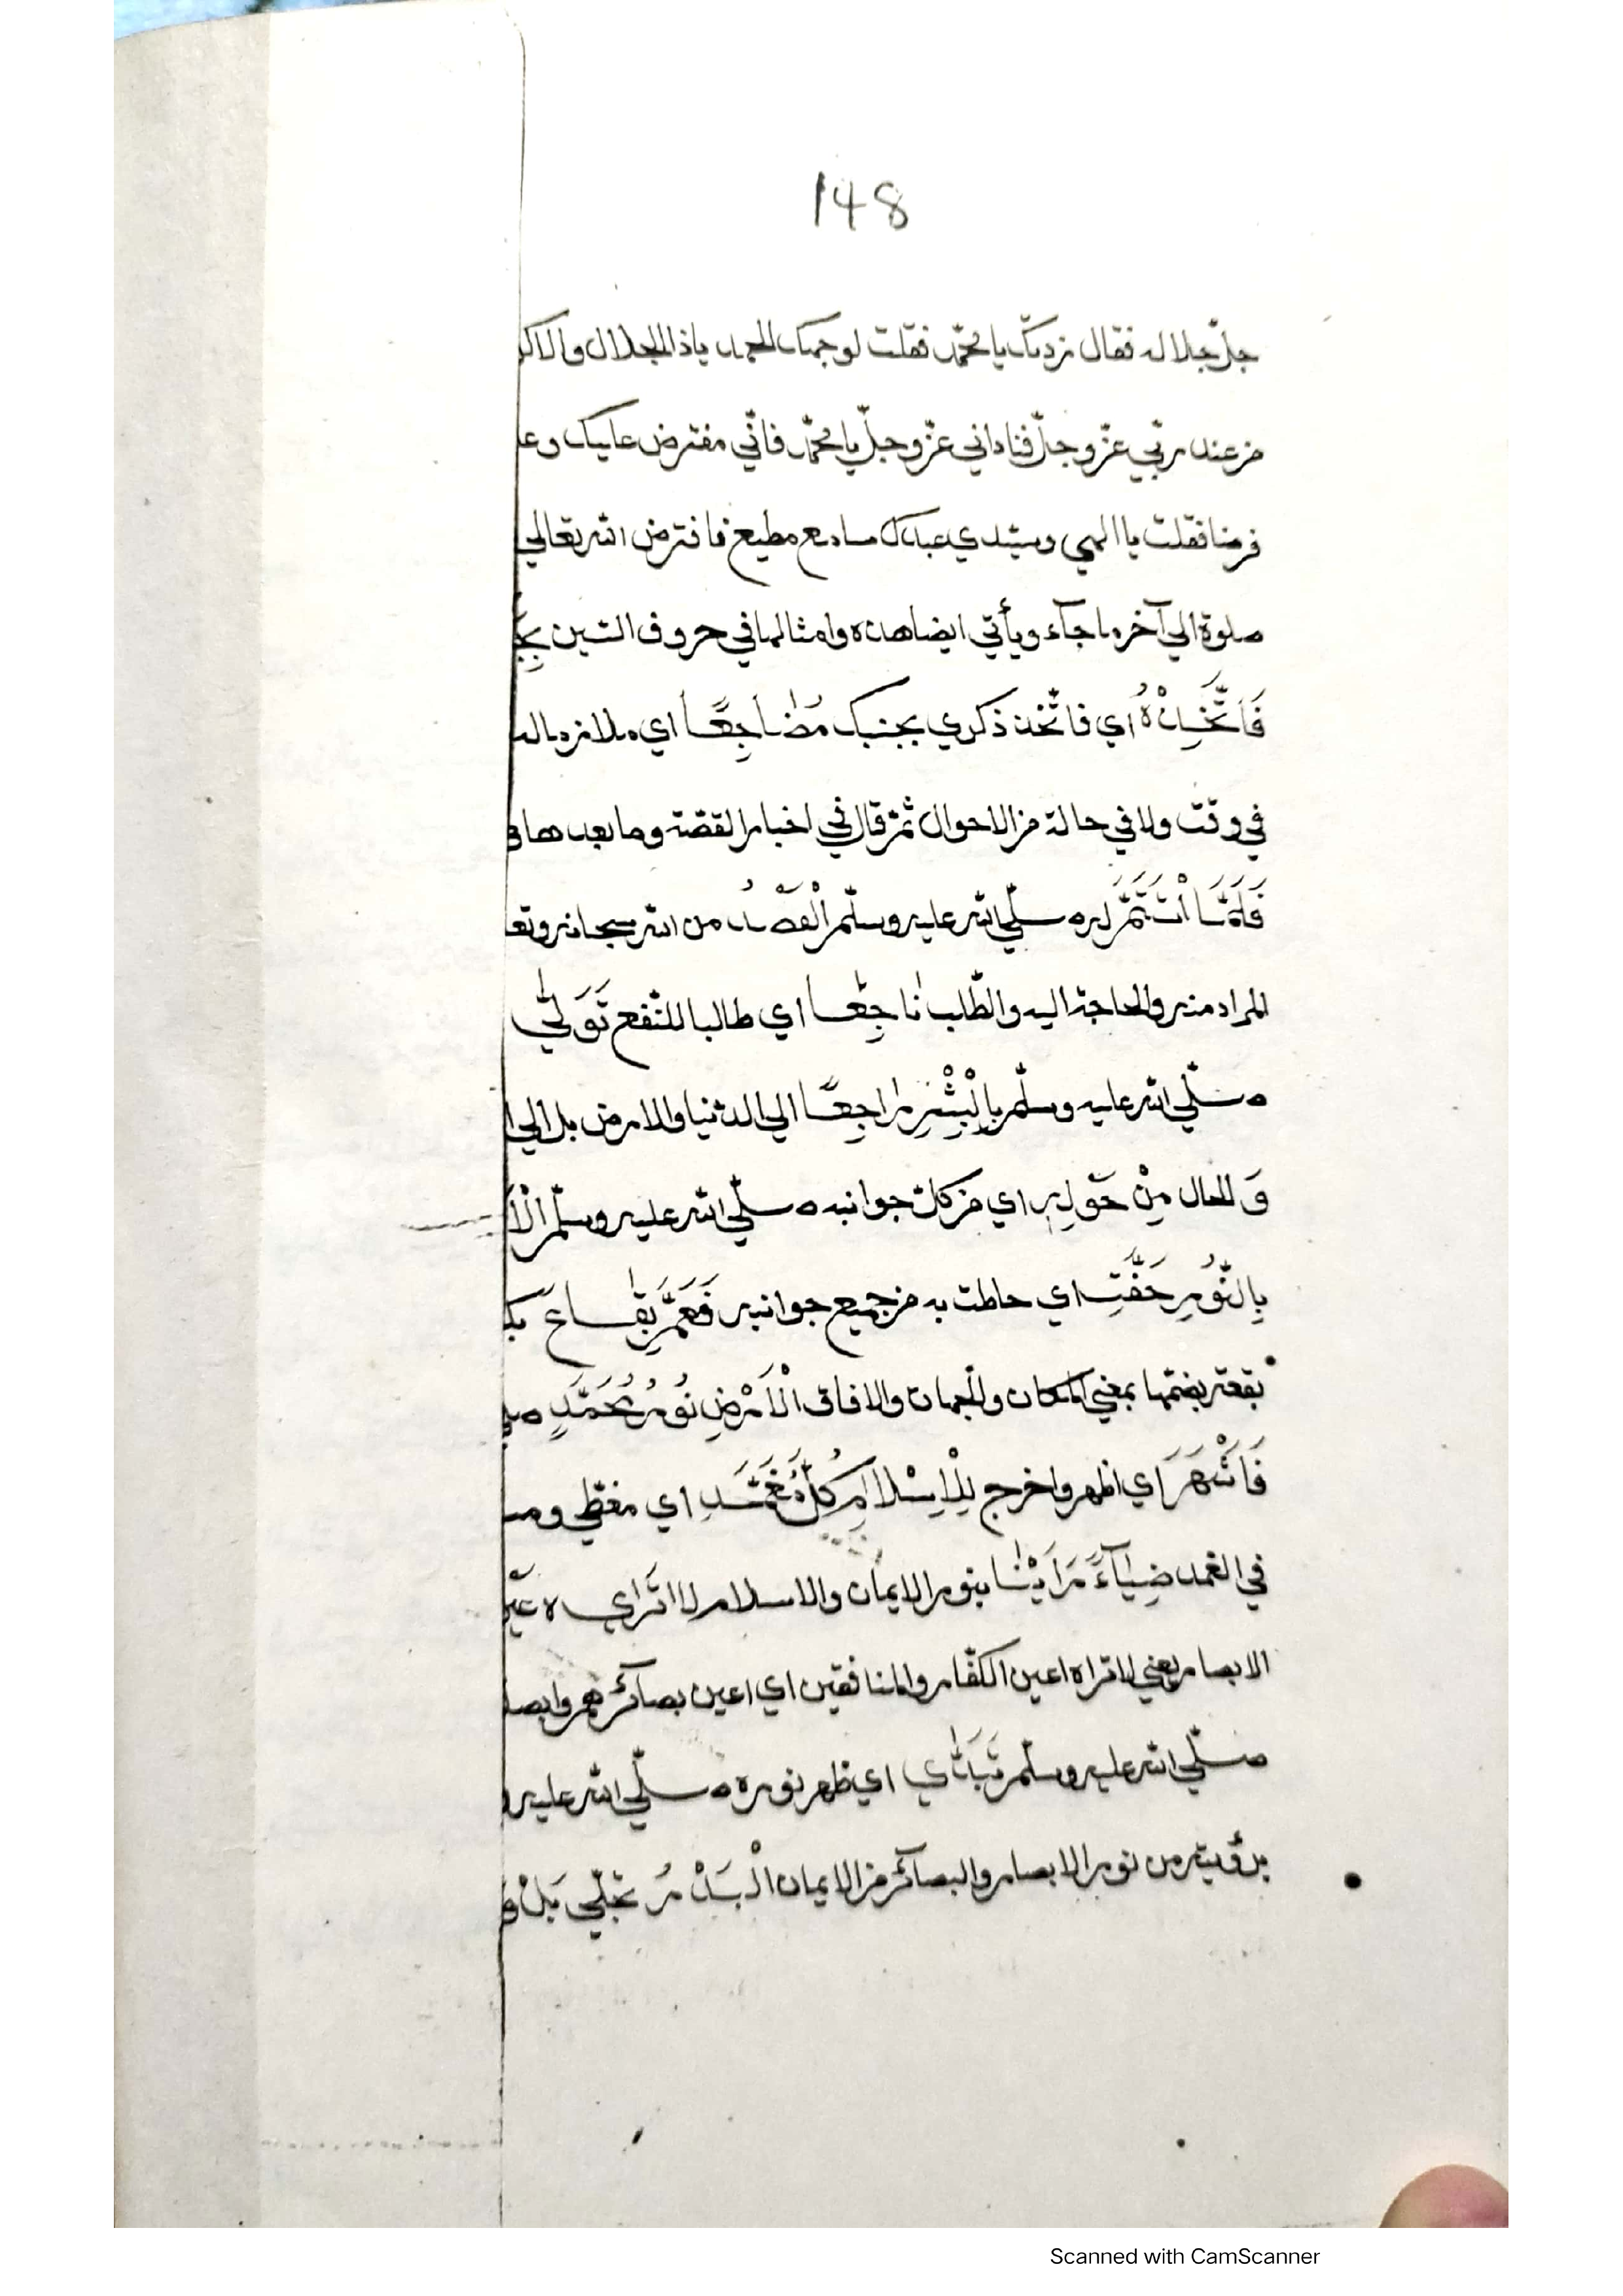 148
جلّ جلاله فقال زدتك يا محمّد فقلت لوجهك الحمد ياذا الجلال والاكر
من عند ربّي عزّ وجلّ فناداني عزّ وجلّ يا محمّد فانّي مفترض عليك وعلـ
فرضا فقلت يا الهي وسيّدي عبدك سامع مطيع فافترض الله تعالي
صلوة الي آخر ما جآء ويأتي ايضا هذه وامثالها في حروف السّين
فَاتَّخِذْهُ اي فاتّخذ ذكري بجنبك مُضَاجِعًا اي ملازم
في وقت ولا في حالة من الاحوال ثمّ قال في اخبار القصّة وما بعدها
فَلَمَّا اسْتَتَمَّ لديه صلّي الله عليه وسلّم الْقَصْدُ من الله سبحانه وتعا
المراد منه والحاجة اليه والطّلب نَاجِعًا اي طالبا للنّفع تَوَلَّي
صلّي الله عليه وسلّم بِالْبِشْرِ رَاجِعًا الي الدّنيا والارض بل الي
وَ الحال مِنْ حَوْلِهِ اي من كلّ جوانبه صلّي الله عليه وسلّم
بِالنُّورِ حَفَّتِ اي حاطت به من جميع جوانبه فَعَمَّ بِقَاعَ
بقعة بضمّها بمعني المكان والجهات والافاق الْاَرْضِ نُورُ مُحَمَّدٍ
فَاَشْهَرَ اي اظهر واخرج لِلْاِسْلَامِ كُلَّ مُغَمَّدِ اي مغطّي
في الغمد ضِيَآءً رَاَيْنَا بنور الايمان والاسلام لا اتّراي
الابصار يعني لا تراه اعين الكفّار والمنافقين اي اعين بصائرهم وابصا
صلّي الله عليه وسلّم تَبَدَّي اي ظهر نوره صلّي الله عليه و
برؤيته من نور الابصار والبصائر من الايمان الْبَدْرُ تجلّي بَلْ
Scanned with CamScanner